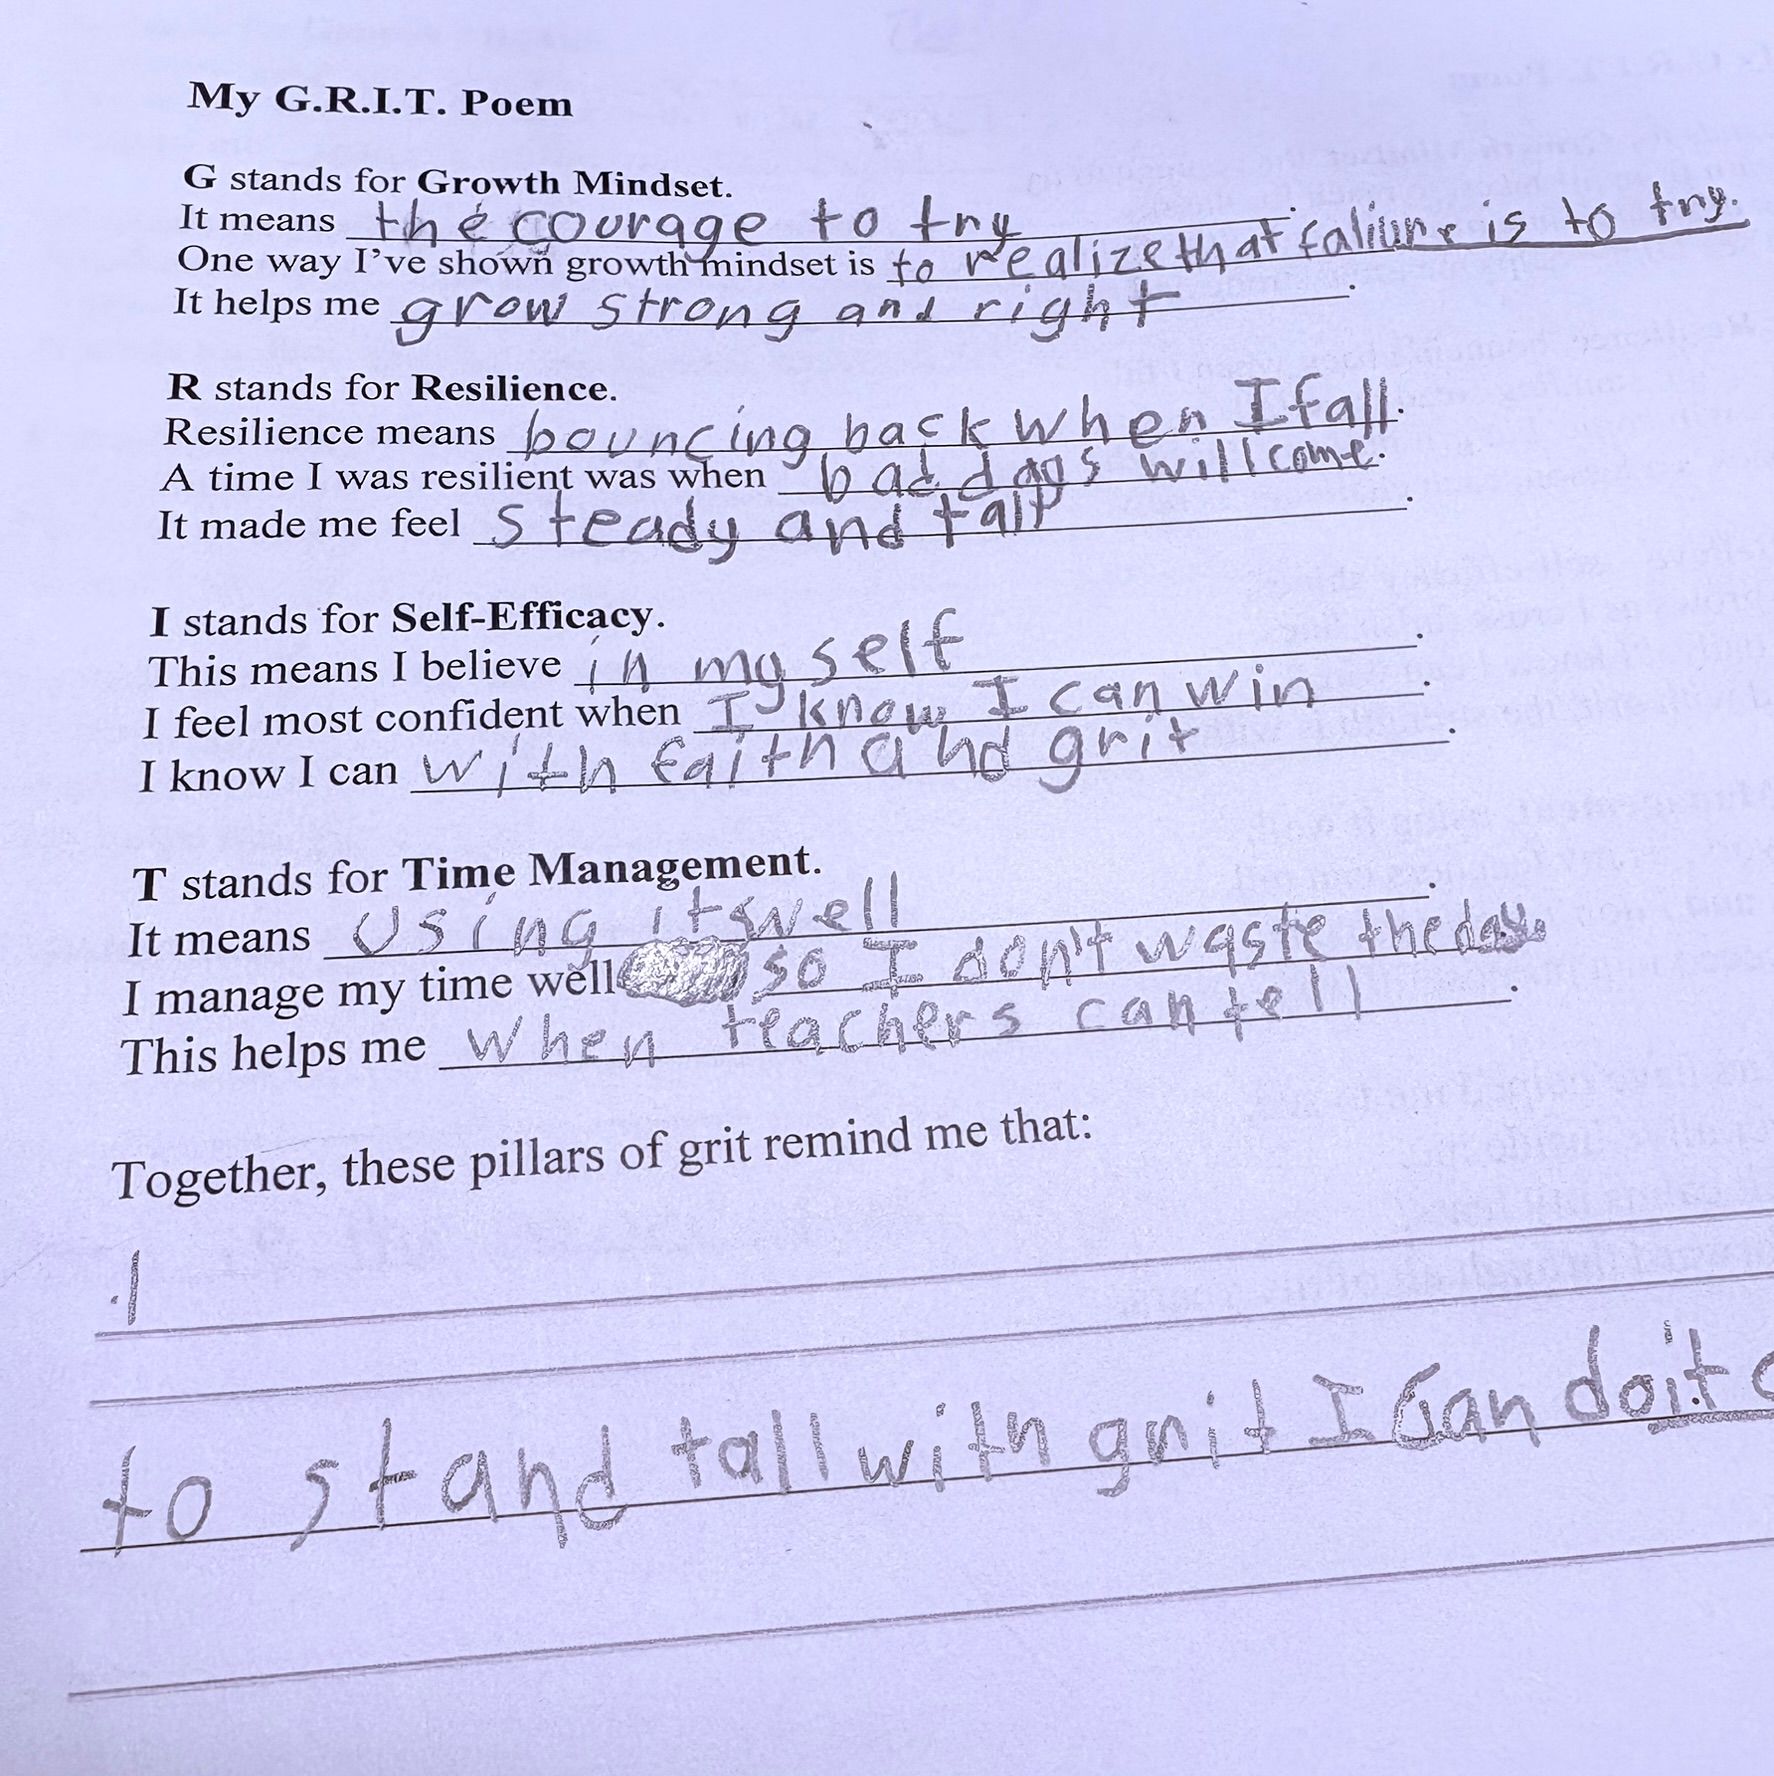 My G.R.I.T. Poem
G stands for Growth Mindset.
It means the courage to try.
One way I've shown growth mindset is to realize that faliure is to try.
It helps me grow strong and right.
R stands for Resilience.
Resilience means bouncing back when I fall.
A time I was resilient was when bad days will come.
It made me feel steady and tall.
I stands for Self-Efficacy.
This means I believe in my self.
I feel most confident when I know I can win.
I know I can with faith and grit.
T stands for Time Management.
It means Using it well.
I manage my time well so I don't waste the day.
This helps me when teachers can tell.
Together, these pillars of grit remind me that:
to stand tall with grit I can do it